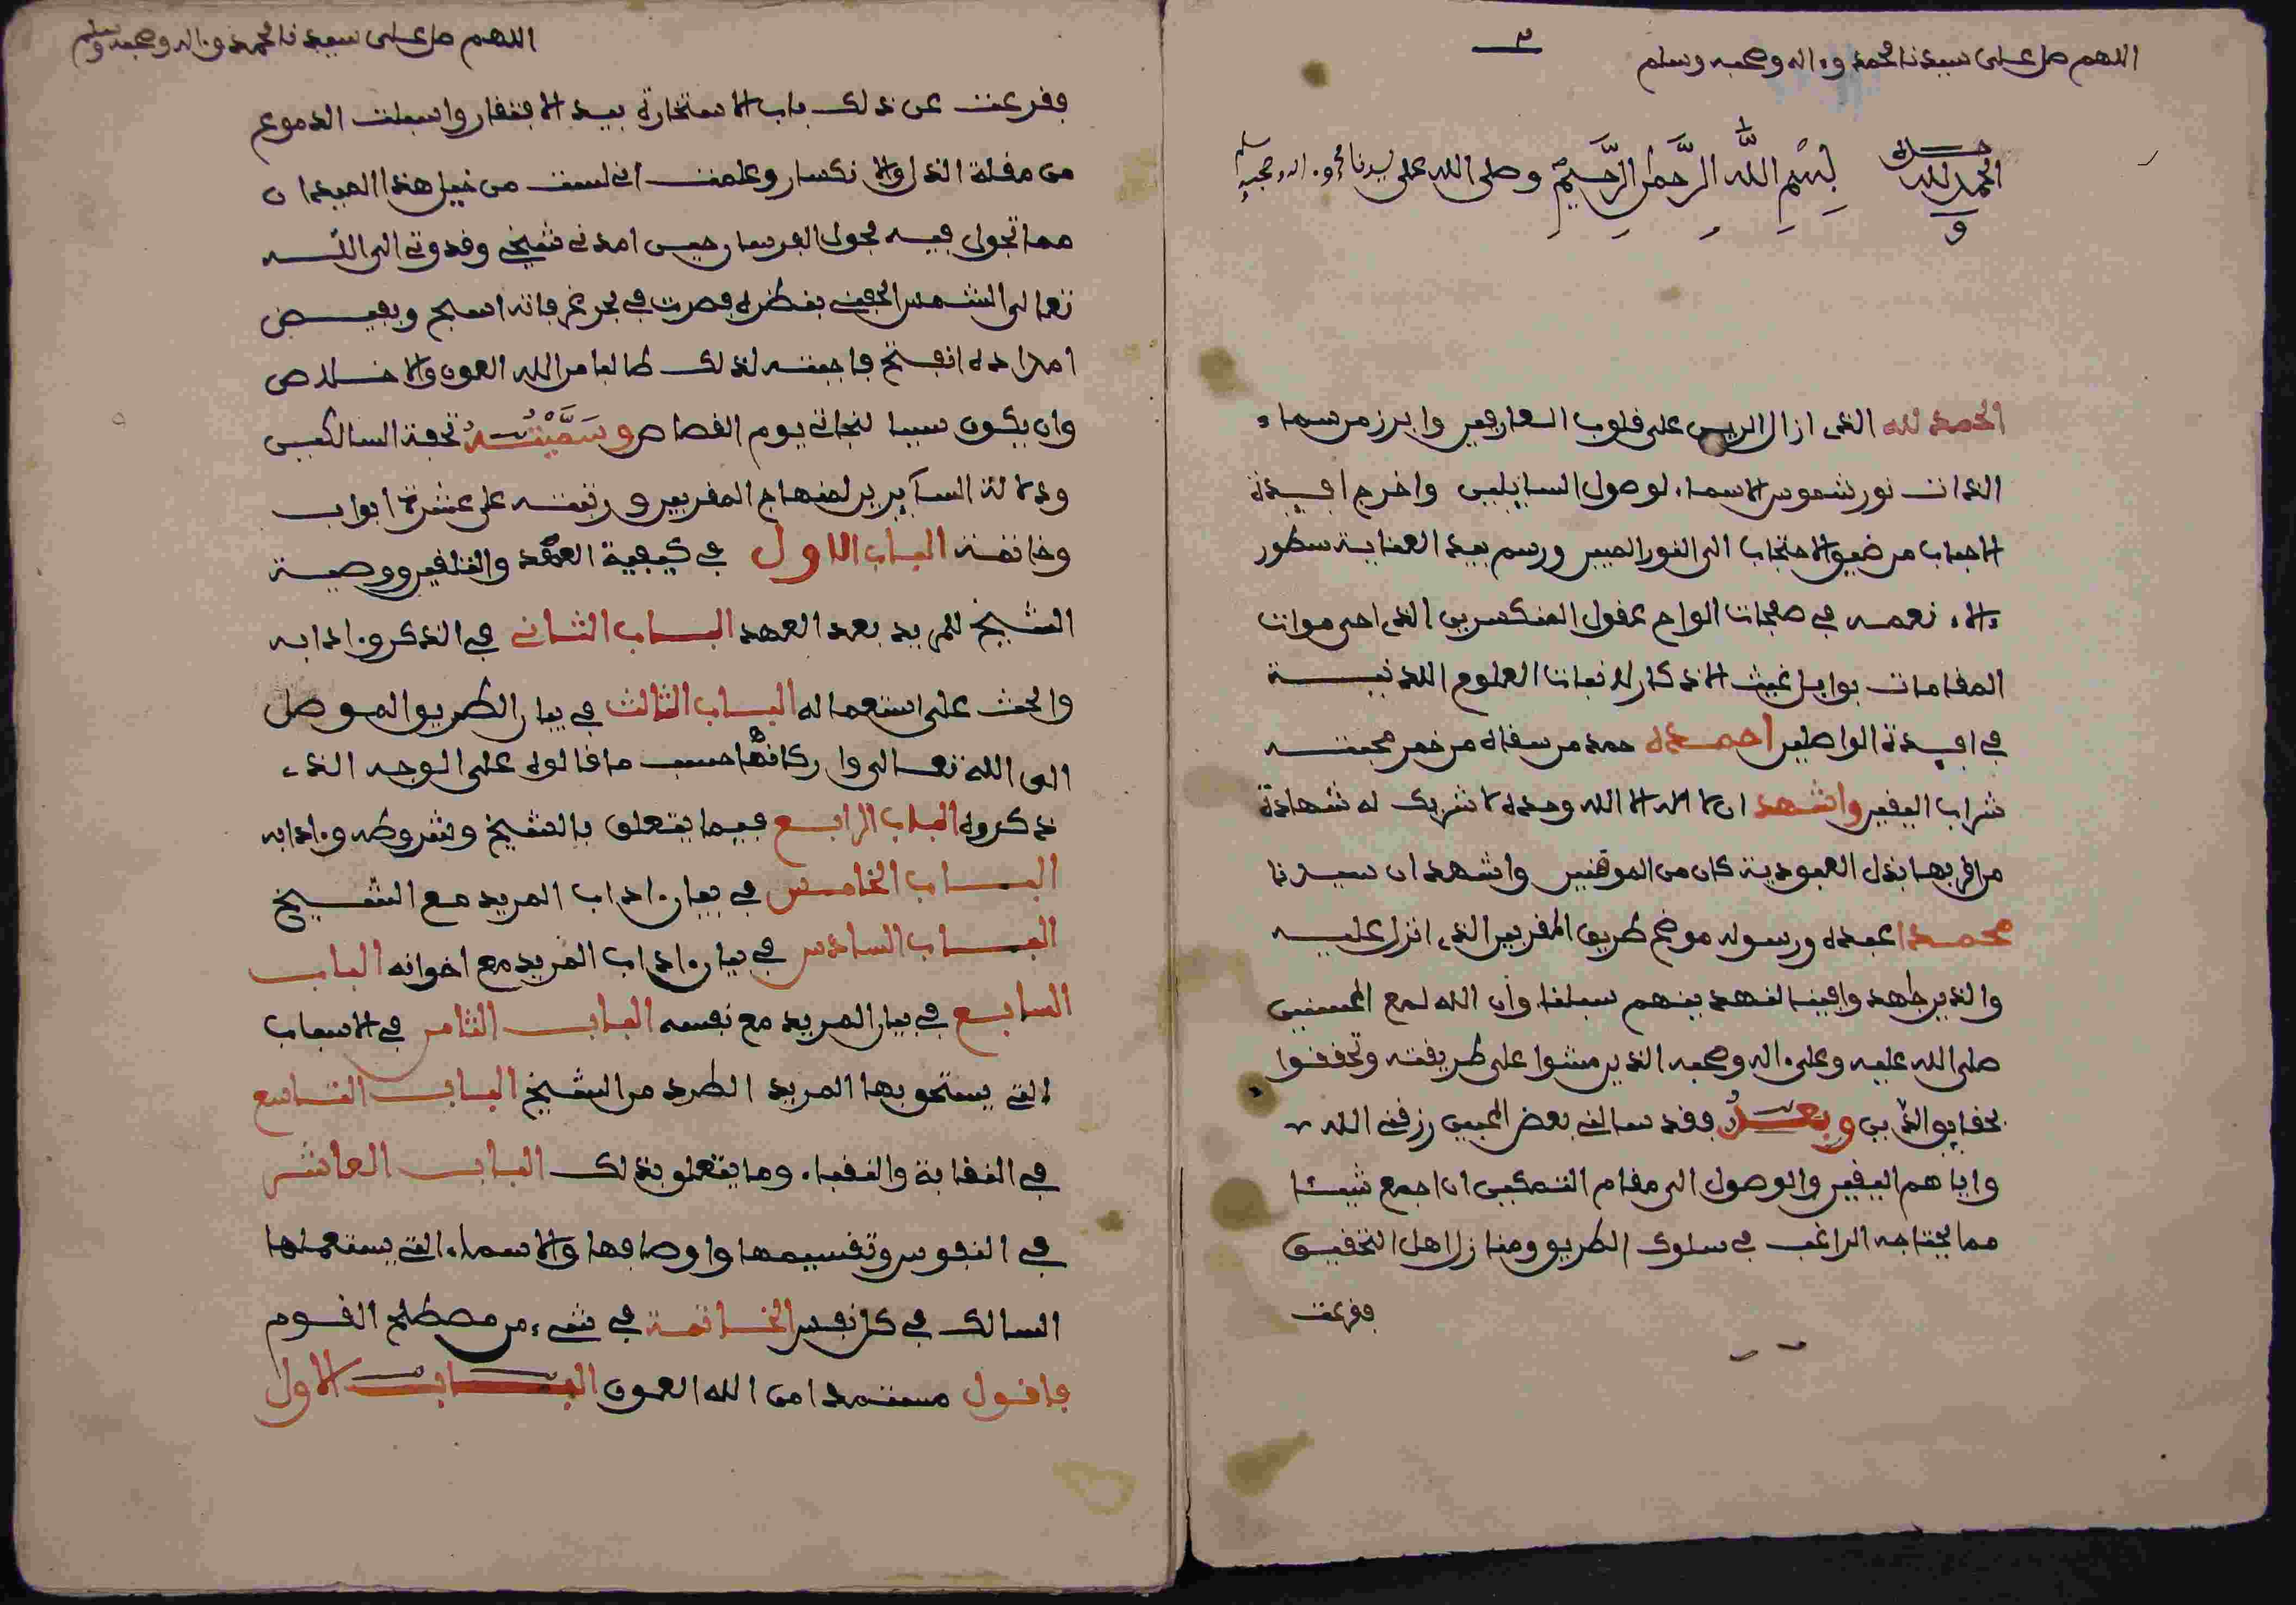 اللهم صل على سيدنا محمد وءاله وصحبه وسلم
الحمد لله وحده بسم الله الرحمن الرحيم وصلى الله على سيدنا محمد وءاله وصحبه وسلم
الحمد لله الذي ازال الرين على قلوب العارفين وابرز من سماء
الذات نور شموس الاسماء لوصول السايلين واخرج افيدة
الاحباب من ضيق الاحتجاب الى النور المبين ورسم بيد العناية سطور
ءالاء نعمه في صفحات الواح عقول المنكسرين الذي احى موات
المقامات بوابل غيث الاذكار لانبات العلوم اللدنية
في افيدة الواصلين احمده حمد من سقاه من خمر محبته
شراب اليقين واشهد ان لا اله الا الله وحده لا شريك له شهادة
من اقر بها بذل العبودية كان من الموقنين واشهد ان سيدنا
محمدا عبده ورسوله موضح طريق المقربين الذي انزل عليه
والذين جاهدوا فينا لنهدينهم سبلنا وان الله لمع المحسنين
صلى الله عليه وعلى ءاله وصحبه الذين مشوا على طريقته وتحققوا
بحقايق الدين وبعد فقد سالني بعض المحبين رزقني الله
واياهم اليقين والوصول الى مقام التمكين ان اجمع شيئا
مما يحتاجه الراغب في سلوك الطريق ومنازل اهل التحقيق
فقرعت
اللهم صل على سيدنا محمد وءاله وصحبه وسلم
فقرعت عن ذلك باب الاستخارة بيد الافتقار واسبلت الدموع
من مقلة الذل والانكسار وعلمت اني لست من خيل هذا الميدان
مما تجول فيه فحول الفرسان حين امدني شيخي وقدوتي الى الله
تعالى الشمس الحفني بنظره فصرت في بحر غرفاته اسبح وبفيض
امداده انفتح فاجبته لذلك طالبا من الله العون والاخلاص
وان يكون سببا لنجاتي يوم القصاص وسميته تحفة السالكين
ودلالة السآيرين لمنهاج المقربين ورتبته على عشرة ابواب
وخاتمة الباب الاول في كيفية العهد والتلقين ووصية
الشيخ للمريد بعد العهد الباب الثاني في الذكر وءادابه
والحث على استعماله الباب الثالث في بيان الطريق الموصل
الى الله تعالى واركانها حسب ما قالوه على الوجه الذي
ذكروه الباب الرابع فيما يتعلق بالشيخ وشروطه وءادابه
الباب الخامس في بيان ءاداب المريد مع الشيخ
الباب السادس في بيان ءاداب المريد مع اخوانه الباب
السابع في بيان المريد مع نفسه الباب الثامن في الاسباب
التي يستحق بها المريد الطرد من الشيخ الباب التاسع
في النقابة والنقباء وما يتعلق بذلك الباب العاشر
في النفوس وتقسيمها واوصافها والاسماء التي يستعملها
السالك في كل نفس الخاتمة في شيء من مصطلح القوم
فاقول مستمدا من الله العون الباب الاول